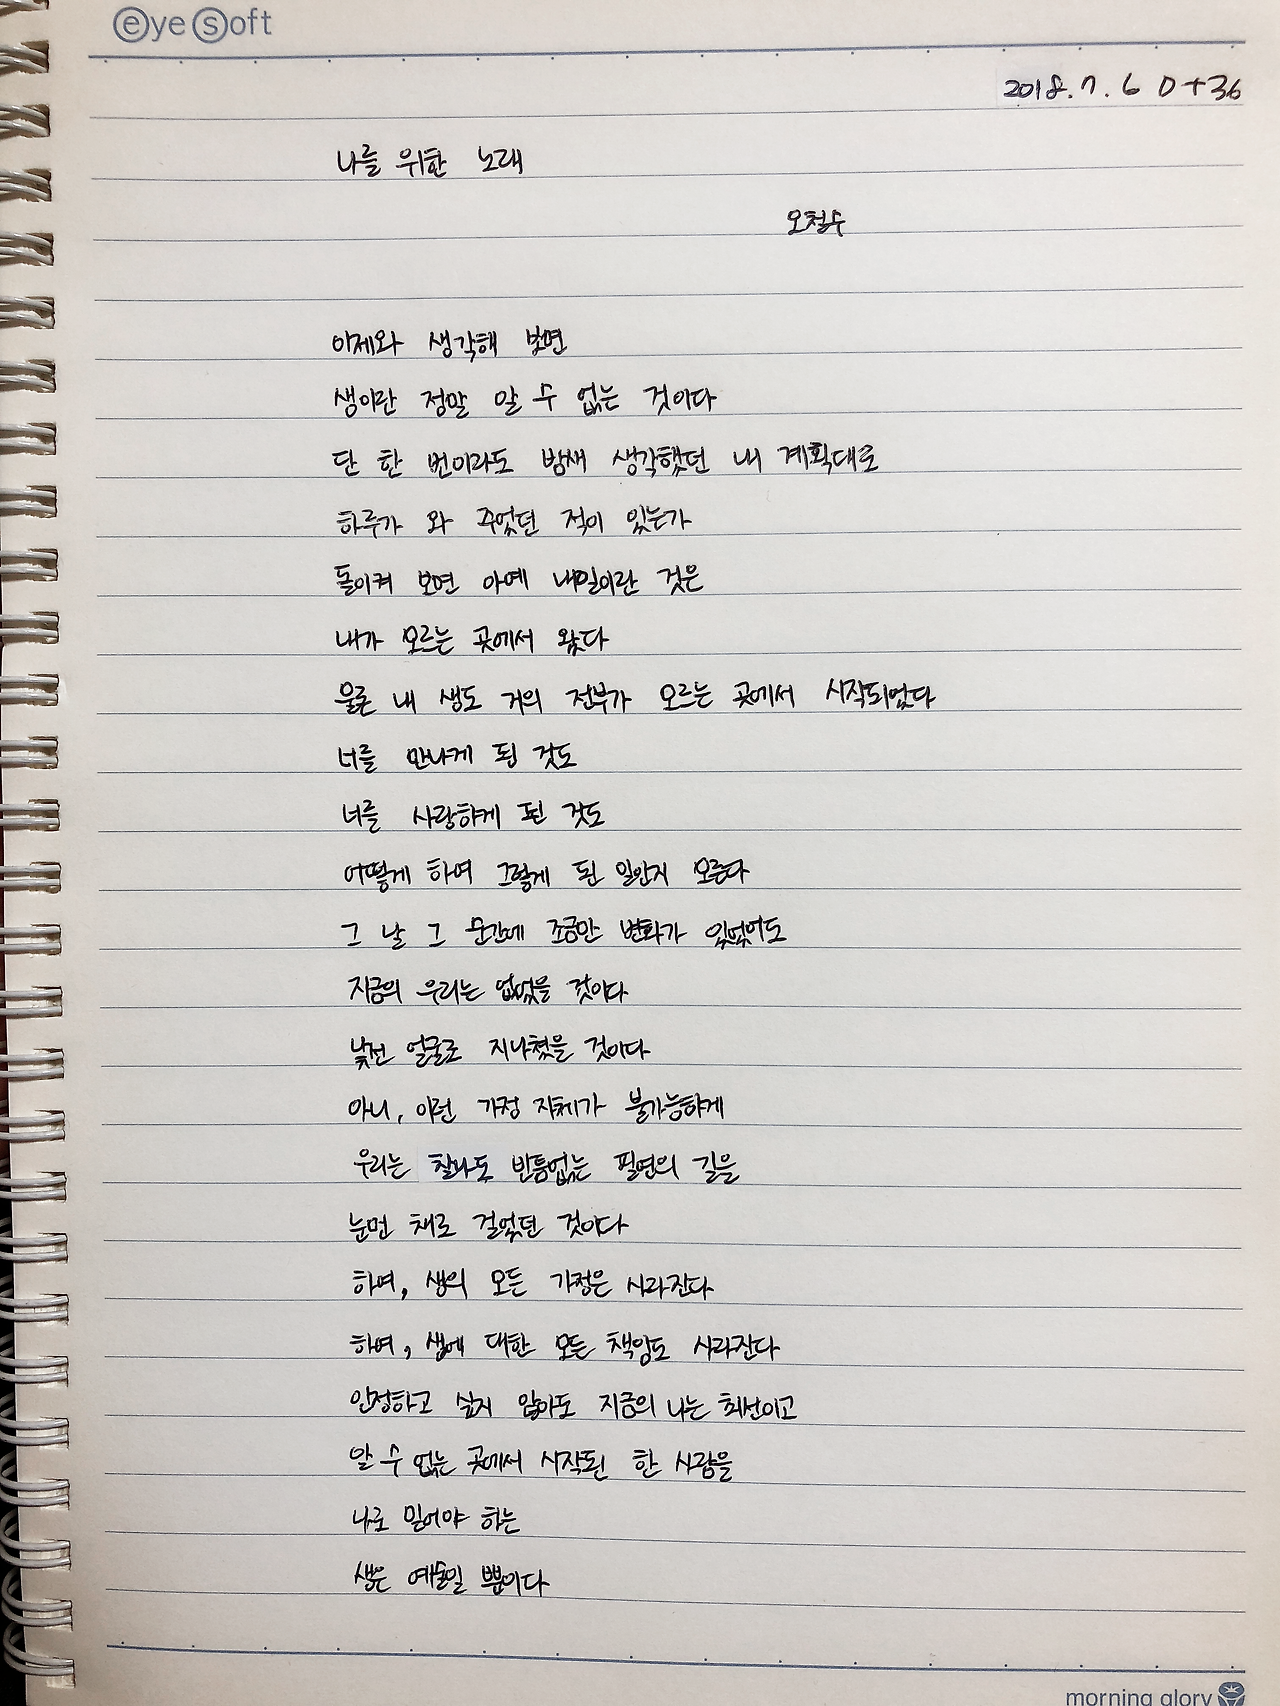 eye soft
2018. 7. 6 D+36
나를 위한 노래
오철수
이제와 생각해 보면
생이란 정말 알 수 없는 것이다
단 한 번이라도 밤새 생각했던 내 계획대로
하루가 와 주었던 적이 있는가
돌이켜 보면 아예 내일이란 것은
내가 모르는 곳에서 왔다
물론 내 생도 거의 전부가 모르는 곳에서 시작되었다
너를 만나게 된 것도
너를 사랑하게 된 것도
어떻게 하여 그렇게 된 일인지 모른다
그 날 그 순간에 조금만 변화가 있었어도
지금의 우리는 없었을 것이다
낯선 얼굴로 지나쳤을 것이다
아니, 이런 가정 자체가 불가능하게
우리는 찰나도 빈틈없는 필연의 길을
눈먼 채로 걸었던 것이다
하여, 생의 모든 가정은 사라진다
하여, 생에 대한 모든 책임도 사라진다
인정하고 싶지 않아도 지금의 나는 최선이고
알 수 없는 곳에서 시작된 한 사람을
나로 믿어야 하는
생은 예술일 뿐이다
morning glory